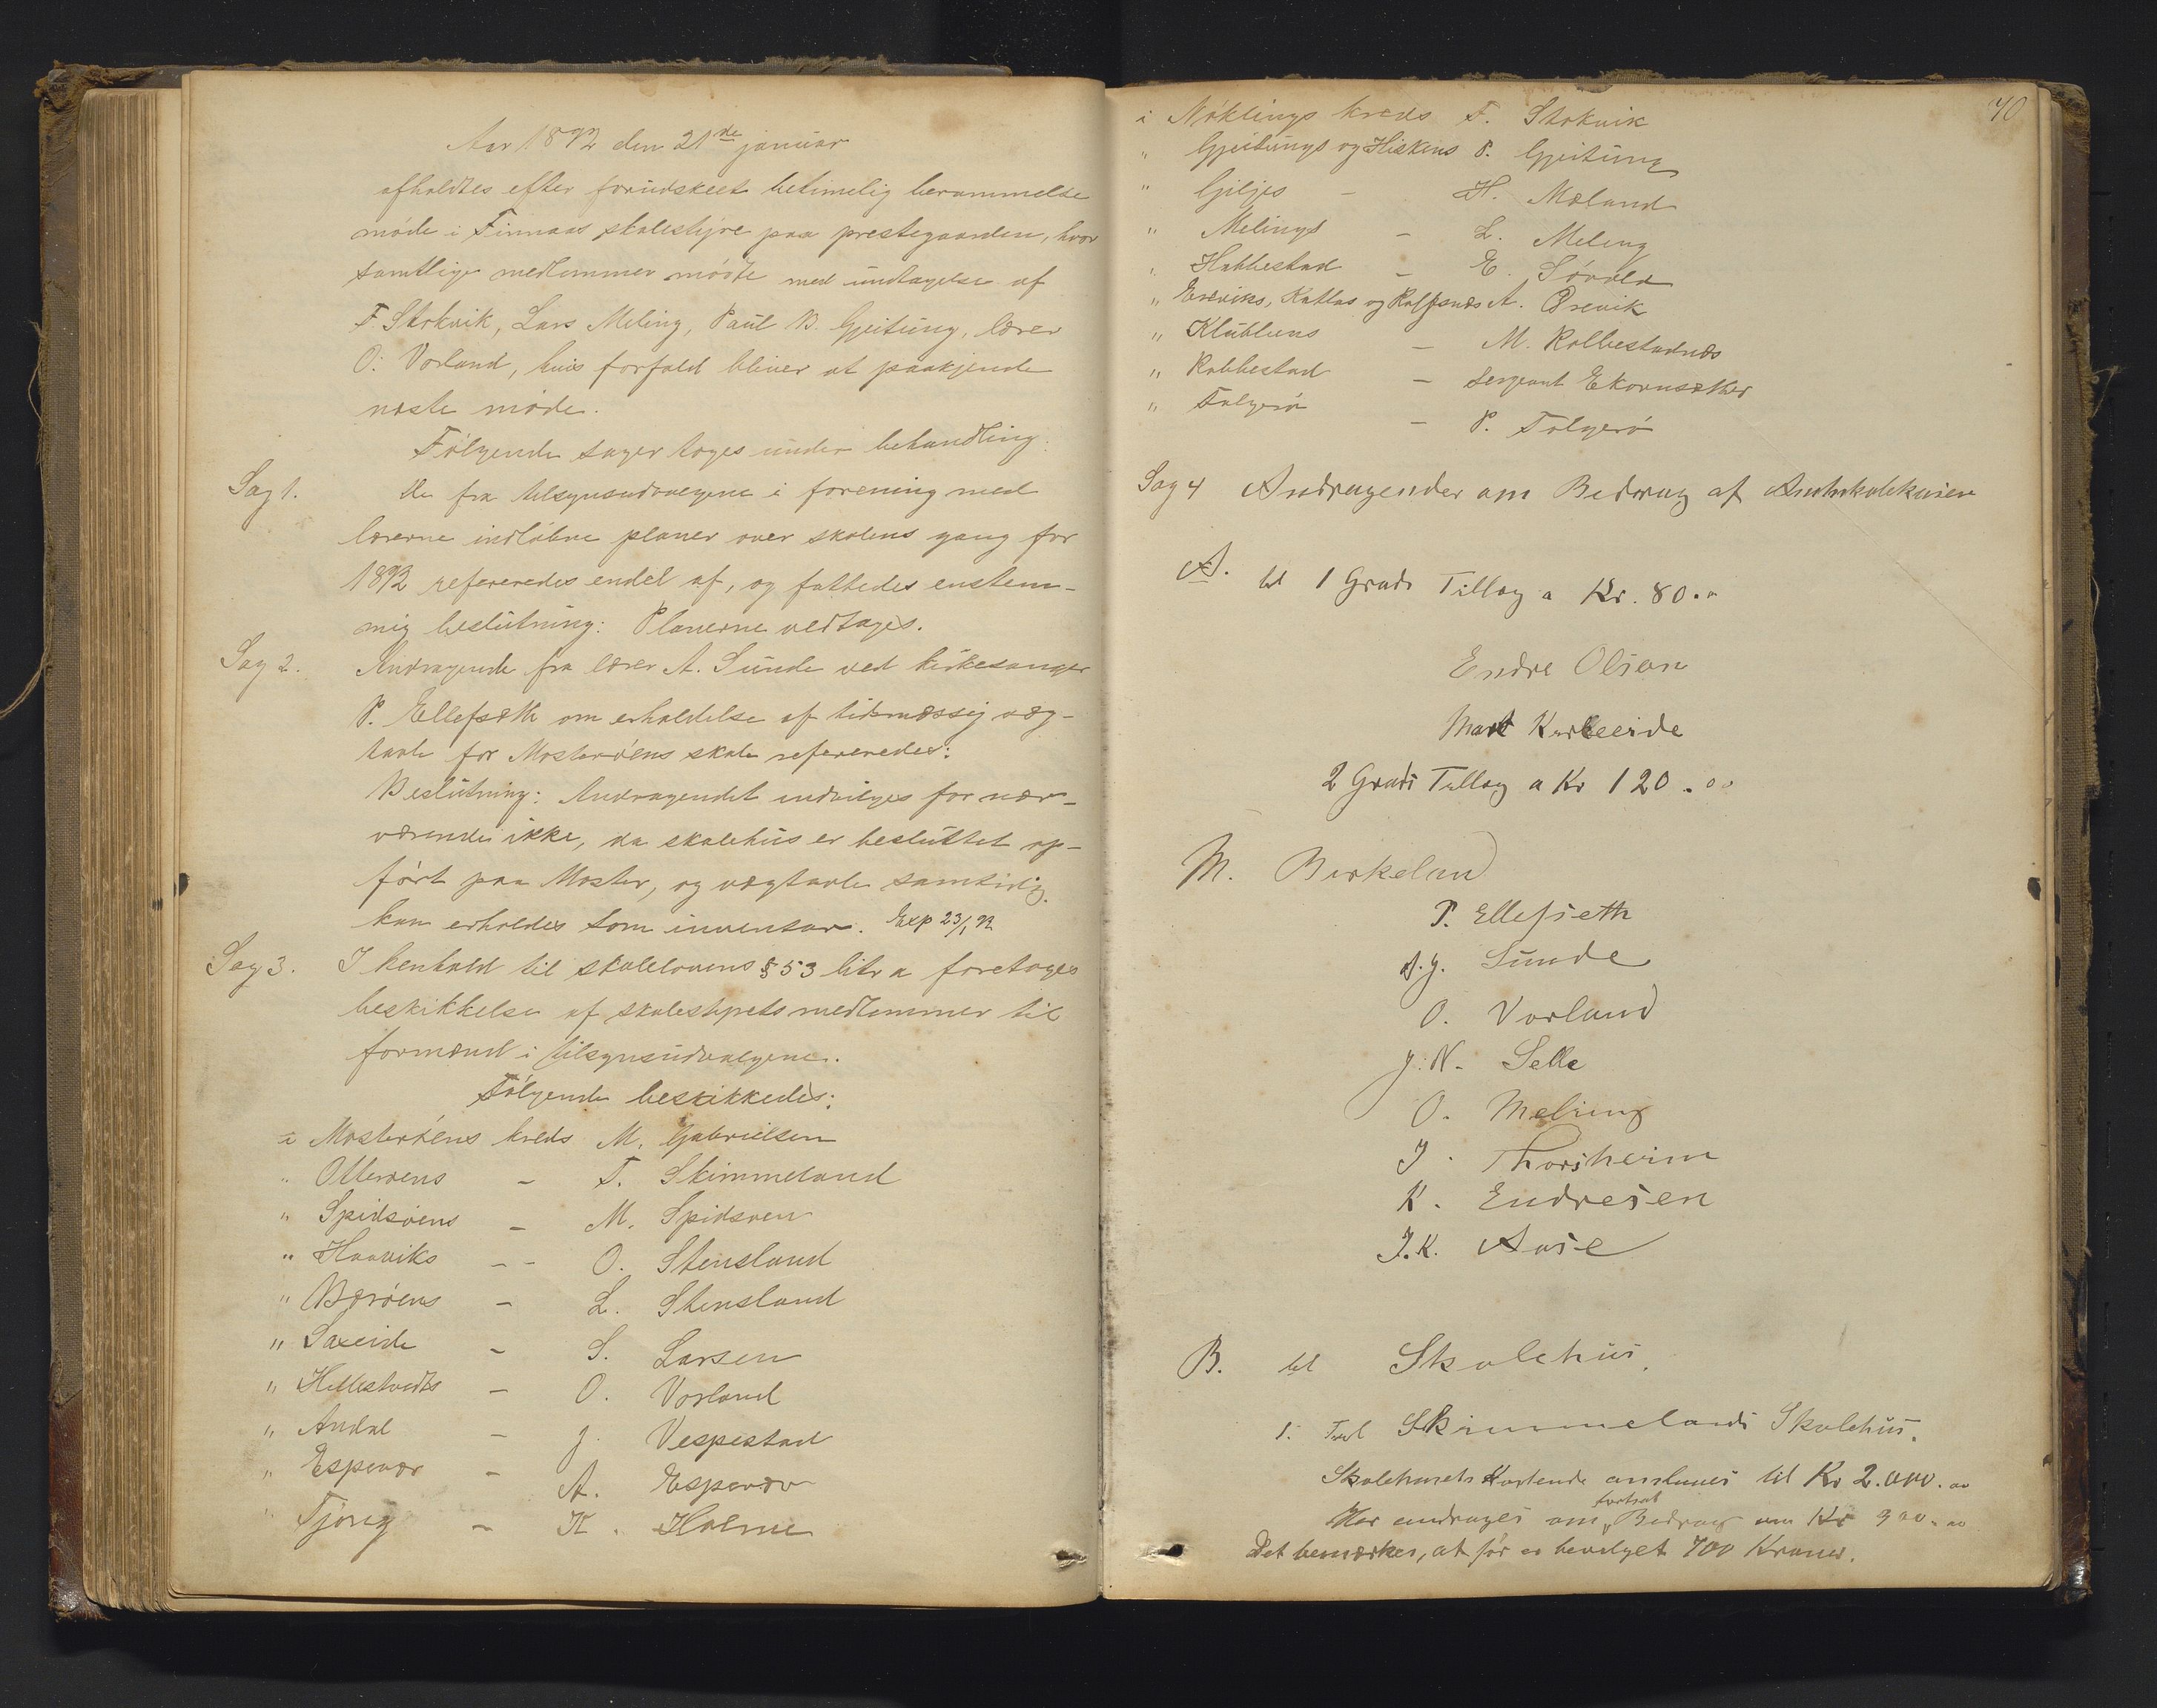 Aar 1892 den 21de januar
afholdtes efter forudskeet betimelig berammelse
møde i Finnaas skolestyre paa prestegaarden, hvor
samtlige medlemmer mødte med undtagelse af
F. Stokvik, Lars Meling, Paul B. Gjeitung, lærer
O. Vorland, hvis forfald bliver at paakjende
næste møde.
Følgende sager toges under behandling:
Sag 1. De fra tilsynsudvalgene i forening med
lærerne indløbne planer over skolens gang for
1892 refereredes endel af, og fattedes enstem-
mig beslutning: Planerne vedtages.
Sag 2. Andragende fra lærer A. Sunde ved kirkesanger
P. Ellefsæth om erholdelse af tidsmæssig væg-
tavle for Mosterøens skole refereredes:
Beslutning: Andragendet indvilges for nær-
værende ikke, da skolehus er besluttet op-
ført paa Moster, og vægtavle samtidig
kan erholdes som inventar. Exp 23/1 92
Sag 3. I henhold til skolelovens § 53 litr a foretoges
beskikkelse af skolestyrets medlemmer til
formænd i tilsynsudvalgene.
Følgende beskikkedes:
i Mosterøens kreds M. Gabrielsen
" Otterøens - T. Skimmeland
" Spidsøens - M. Spidsøen
" Haaviks - - O. Stensland
" Børøens - L. Stensland
" Saxeide - S. Larsen
" Hillestvedts - O. Vorland
" Andal - J. Vespestad
" Espevær - A. Espevær
" Tjong - K. Holme
40
i Nøklings kreds F. Stokvik
" Gjeitungs og Hiskens P. Gjeitung
" Giljes - H. Mæland
" Melings - L. Meling
" Habbestad - E. Sørvold
" Eresviks, Kallas og Rolfsnæs A. Øresvik
" Klubbuns - M. Rolbestadnæs
" Rabbestad - Sergeant Ekornsæther
" Folgerø - P. Folgerø
Sag 4 Andragender om Bidrag af Amtsskolekassen
A. til 1 Grads Tillæg a Kr. 80.00
Endre Olsen
Mart Kirkeeide
2 Grads Tillæg a Kr 120.00
M. Birkeland
P. Ellefsæth
A. J. Sunde
O. Vorland
J. N. Selle
O. Meling
J. Thorsheim
K. Endresen
J. K. Aase
B. til Skolehus.
1. Til Skimmelands Skolehus.
Skolehusets Kostende ansluaes til Kr 2.000.00
Her andrages om fortsat Bidrag om Kr 900.00
Det bemærkes, at før er bevilget 700 Kroner.